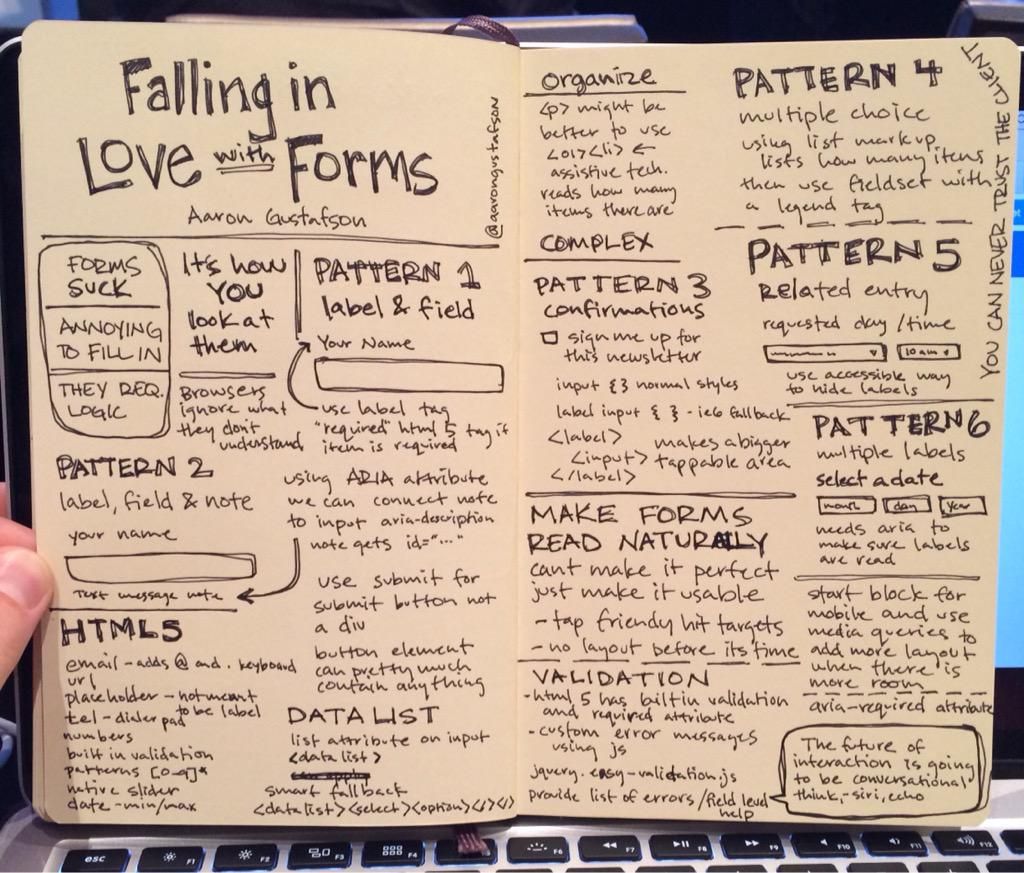 Falling in
Love with Forms
Aaron Gustafson
@aarongustafson
FORMS
SUCK
ANNOYING
TO FILL IN
THEY REQ.
LOGIC
It's how
YOU
look at
them
Browsers
ignore what
they don't
understand
PATTERN 1
label & field
Your Name
use label tag
"required" html 5 tag if
item is required
PATTERN 2
label, field & note
your name
Test message note
using ARIA attribute
we can connect note
to input aria-description
note gets id="..."
use submit for
submit button not
a div
button element
can pretty much
contain anything
HTML5
email - adds @ and . keyboard
url
placeholder - not meant
to be label
tel - dialer pad
numbers
built in validation
patterns [0-9]*
native slider
date - min/max
DATA LIST
list attribute on input
<data list>
smart fallback
<datalist><select><option></></>
organize
<p> might be
better to use
<ol><li> ←
assistive tech.
reads how many
items there are
COMPLEX
PATTERN 3
confirmations
sign me up for
this newsletter
input { } normal styles
label input { } - ie6 fallback
<label>
<input>
</label>
makes a bigger
tappable area
MAKE FORMS
READ NATURALLY
cant make it perfect
just make it usable
- tap friendly hit targets
- no layout before its time
VALIDATION
- html 5 has builtin validation
and required attribute
- custom error messages
using js
jquery.easy-validation.js
provide list of errors/field level
help
PATTERN 4
multiple choice
using list markup,
lists how many items
then use fieldset with
a legend tag
YOU CAN NEVER TRUST THE CLIENT
PATTERN 5
Related entry
requested day/time
10am
use accessible way
to hide labels
PATTERN 6
multiple labels
select a date
month day year
needs aria to
make sure labels
are read
start block for
mobile and use
media queries to
add more layout
when there is
more room
aria-required attribute
The future of
interaction is going
to be conversational
think, - siri, echo
esc F1 F2 F3 F4 F6 F7 F8 F9 F10 F11 F12